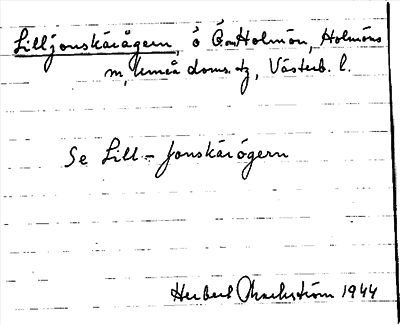 Lilljonskärögern, ö Ö om Holmön, Holmöns
sn, Umeå doms. tg, Västerb. l.
Se Lill-Jonskärögern
Herbert Markström 1944